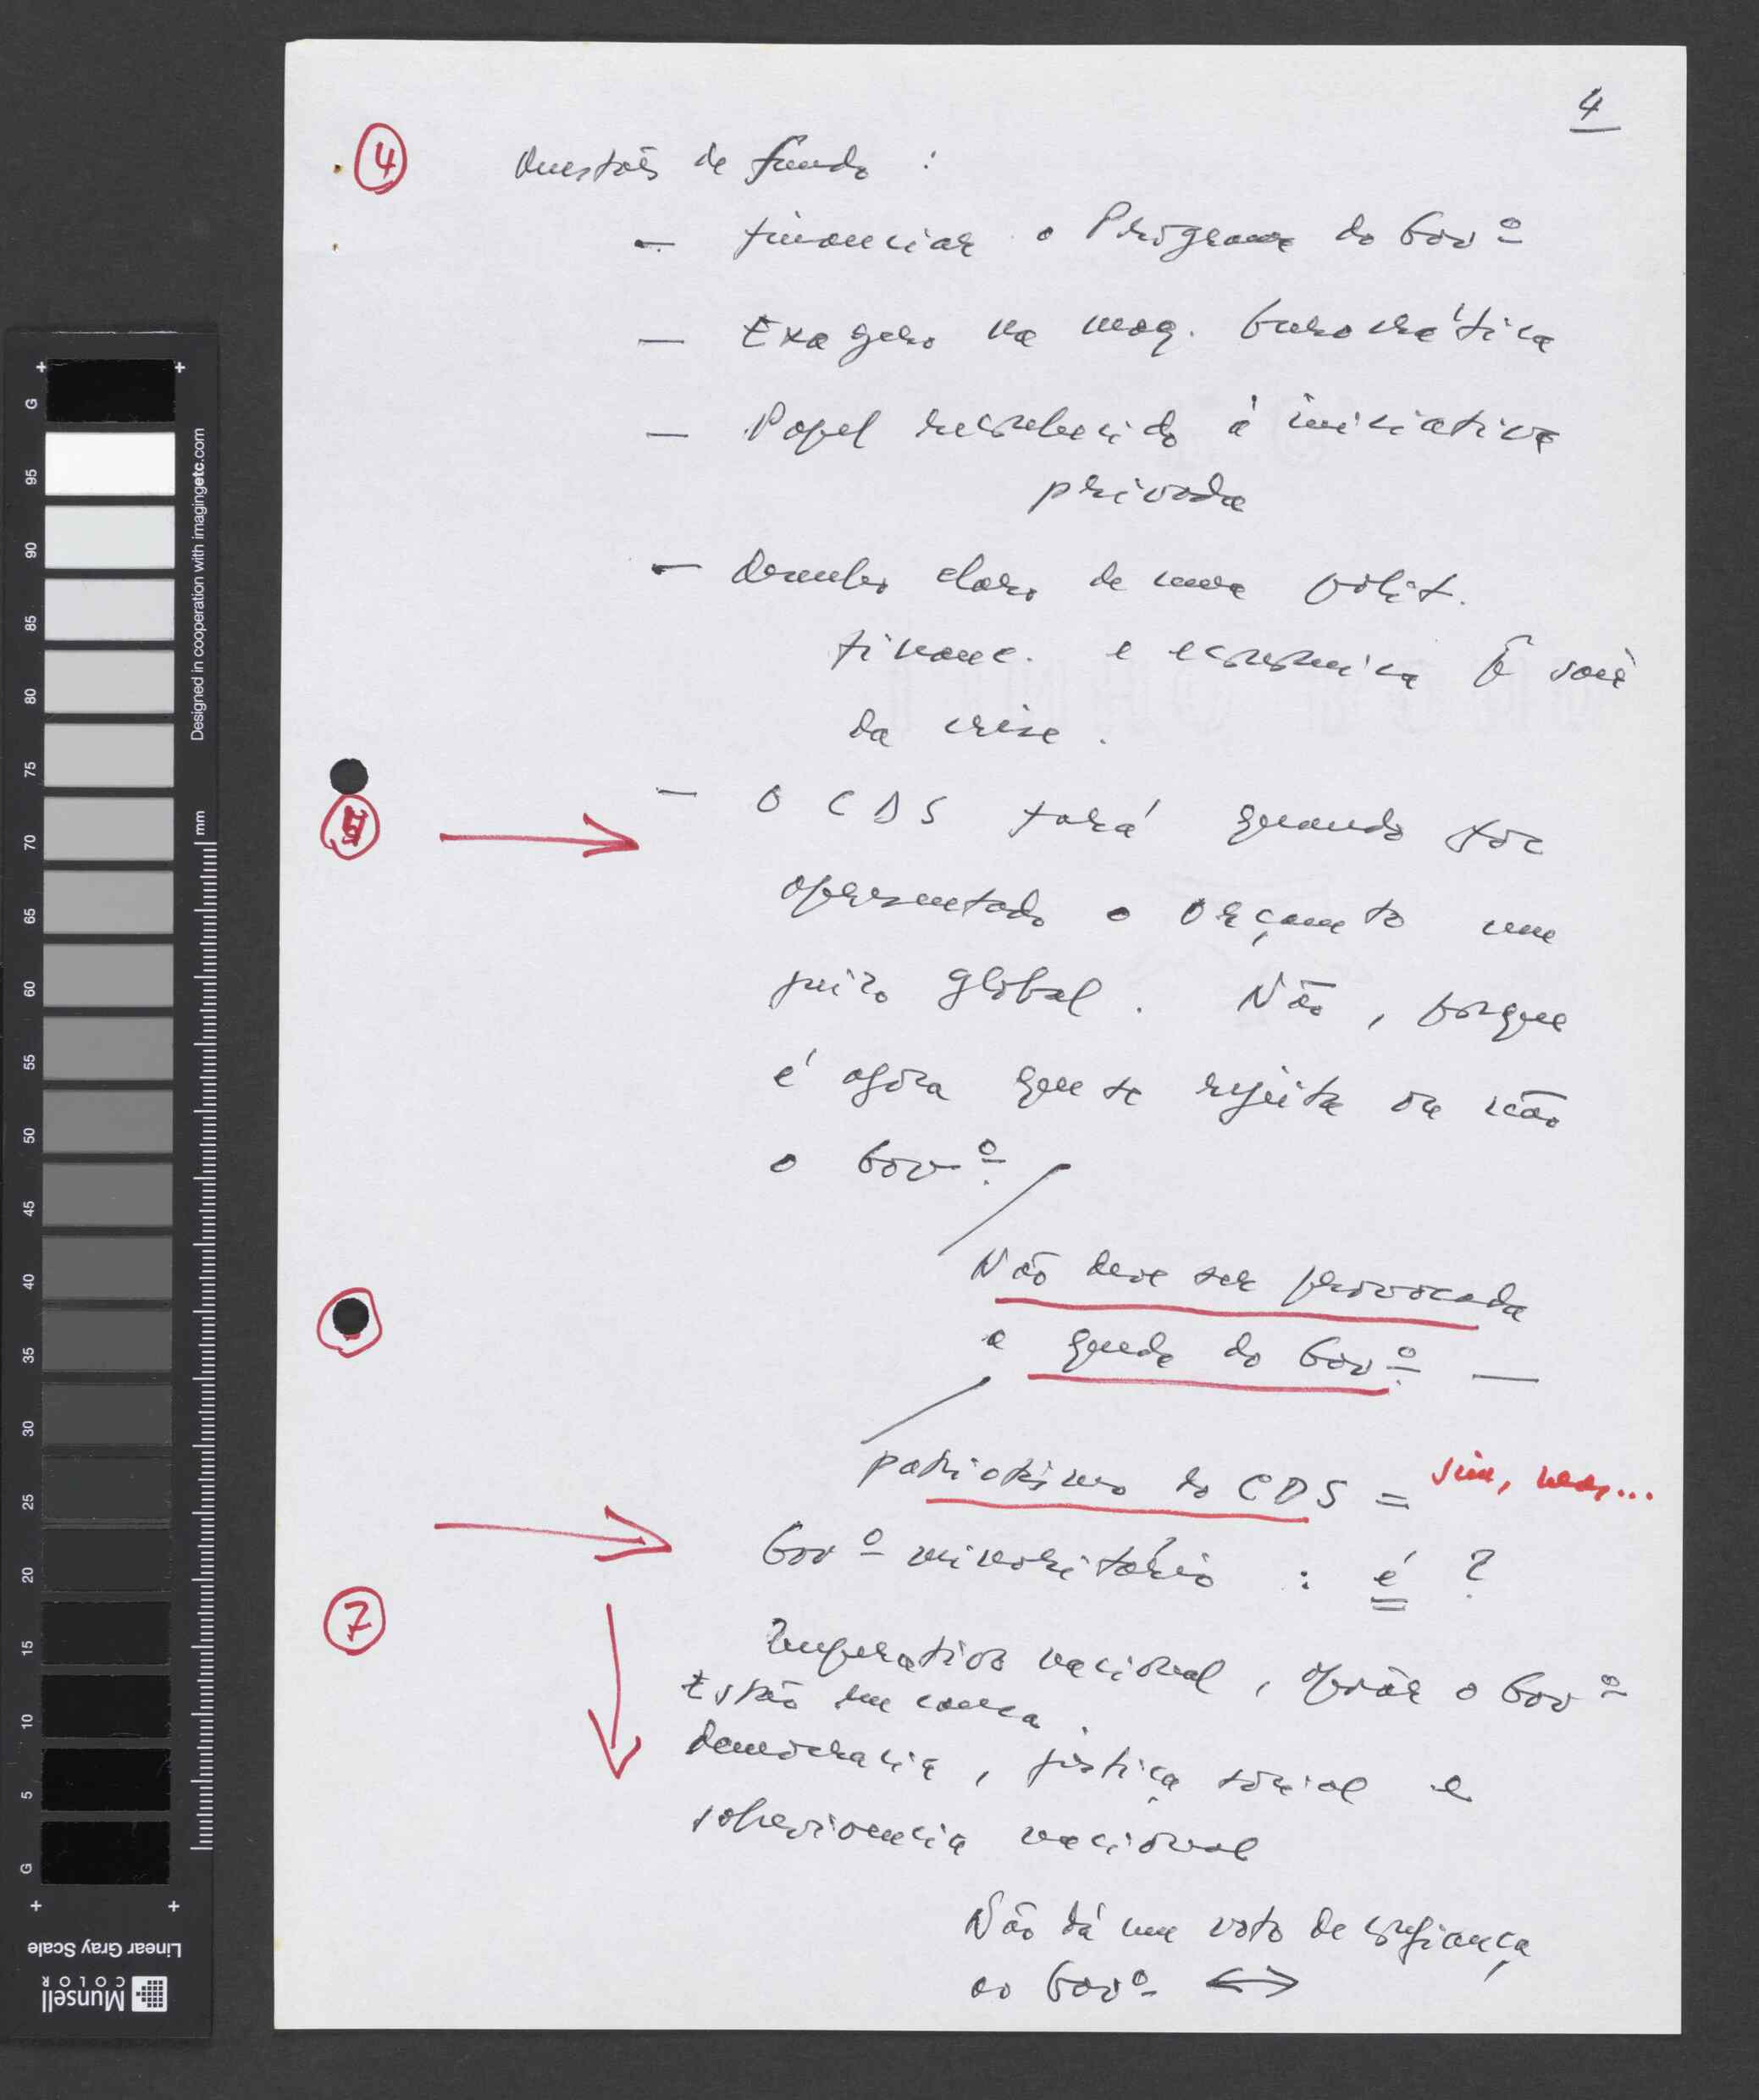 4
4 Questões de fundo :
— financiar o Programa do Govº
— Exagero na maq. burocrática
— Papel reconhecido à iniciativa
privada
— Desenho claro de uma polít.
financ. e economica p/ sair
da crise.
— O CDS fará quando for
apresentado o orçamento um
juizo global. Não, porque
é agora que se rejeita ou não
o Govº.
Não deve ser provocada
a queda do Govº. —
patriotismo do CDS = sim, mas...
Govº minoritário : é ?
7
Imperativo nacional, apoiar o Govº
Estão em causa
democracia, justiça social e
sobrevivencia nacional
Não dá um voto de confiança
ao Govº ↔
Designed in cooperation with imagingetc.com
mm
G 95 90 85 80 75 70 65 60 55 50 45 40 35 30 25 20 15 10 5 G
Munsell
COLOR
Linear Gray Scale